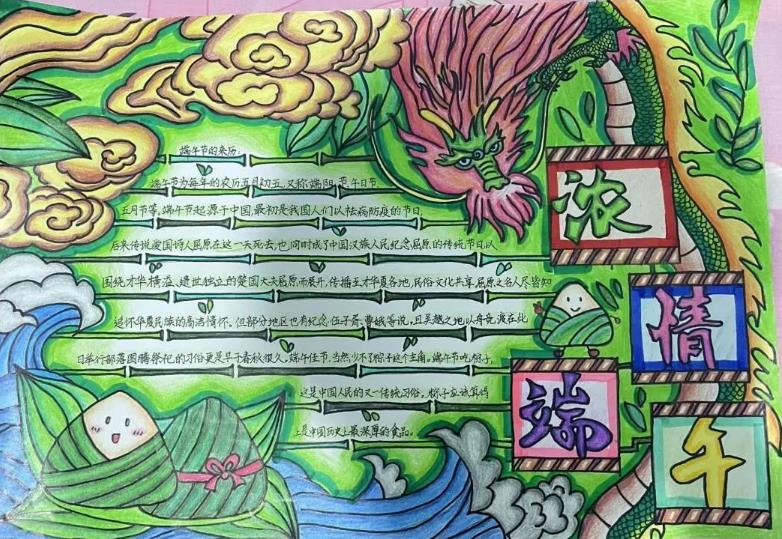 浓
情
端
午
端午节的来历:
端午节为每年的农历五月初五,又称端阳节,午日节,
五月节等,端午节起源于中国,最初是我国人们以祛病防疫的节日,
后来传说爱国诗人屈原在这一天死去,也同时成了中国汉族人民纪念屈原的传统节日,以
围绕才华横溢、遗世独立的楚国大夫屈原而展开,传播至才华夏各地,民俗文化共享,屈原之名人尽皆知
追怀华夏民族的高洁情怀。但部分地区也有纪念伍子胥、曹娥等说,且吴越之地以舟竞渡在此
日举行部落图腾祭祀的习俗更是早于春秋很久。端午佳节,当然少不了粽子这个主角。端午节吃粽子,
这是中国人民的又一传统习俗。粽子应该算得
上是中国历史上最深厚的食品。